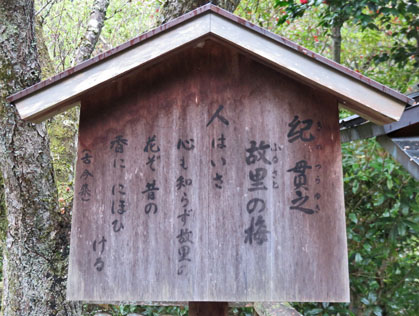 紀貫之
きのつらゆき
故里の梅
ふるさと
人はいさ
心も知らず故里の
花ぞ昔の
香ににほひ
ける
（古今集）